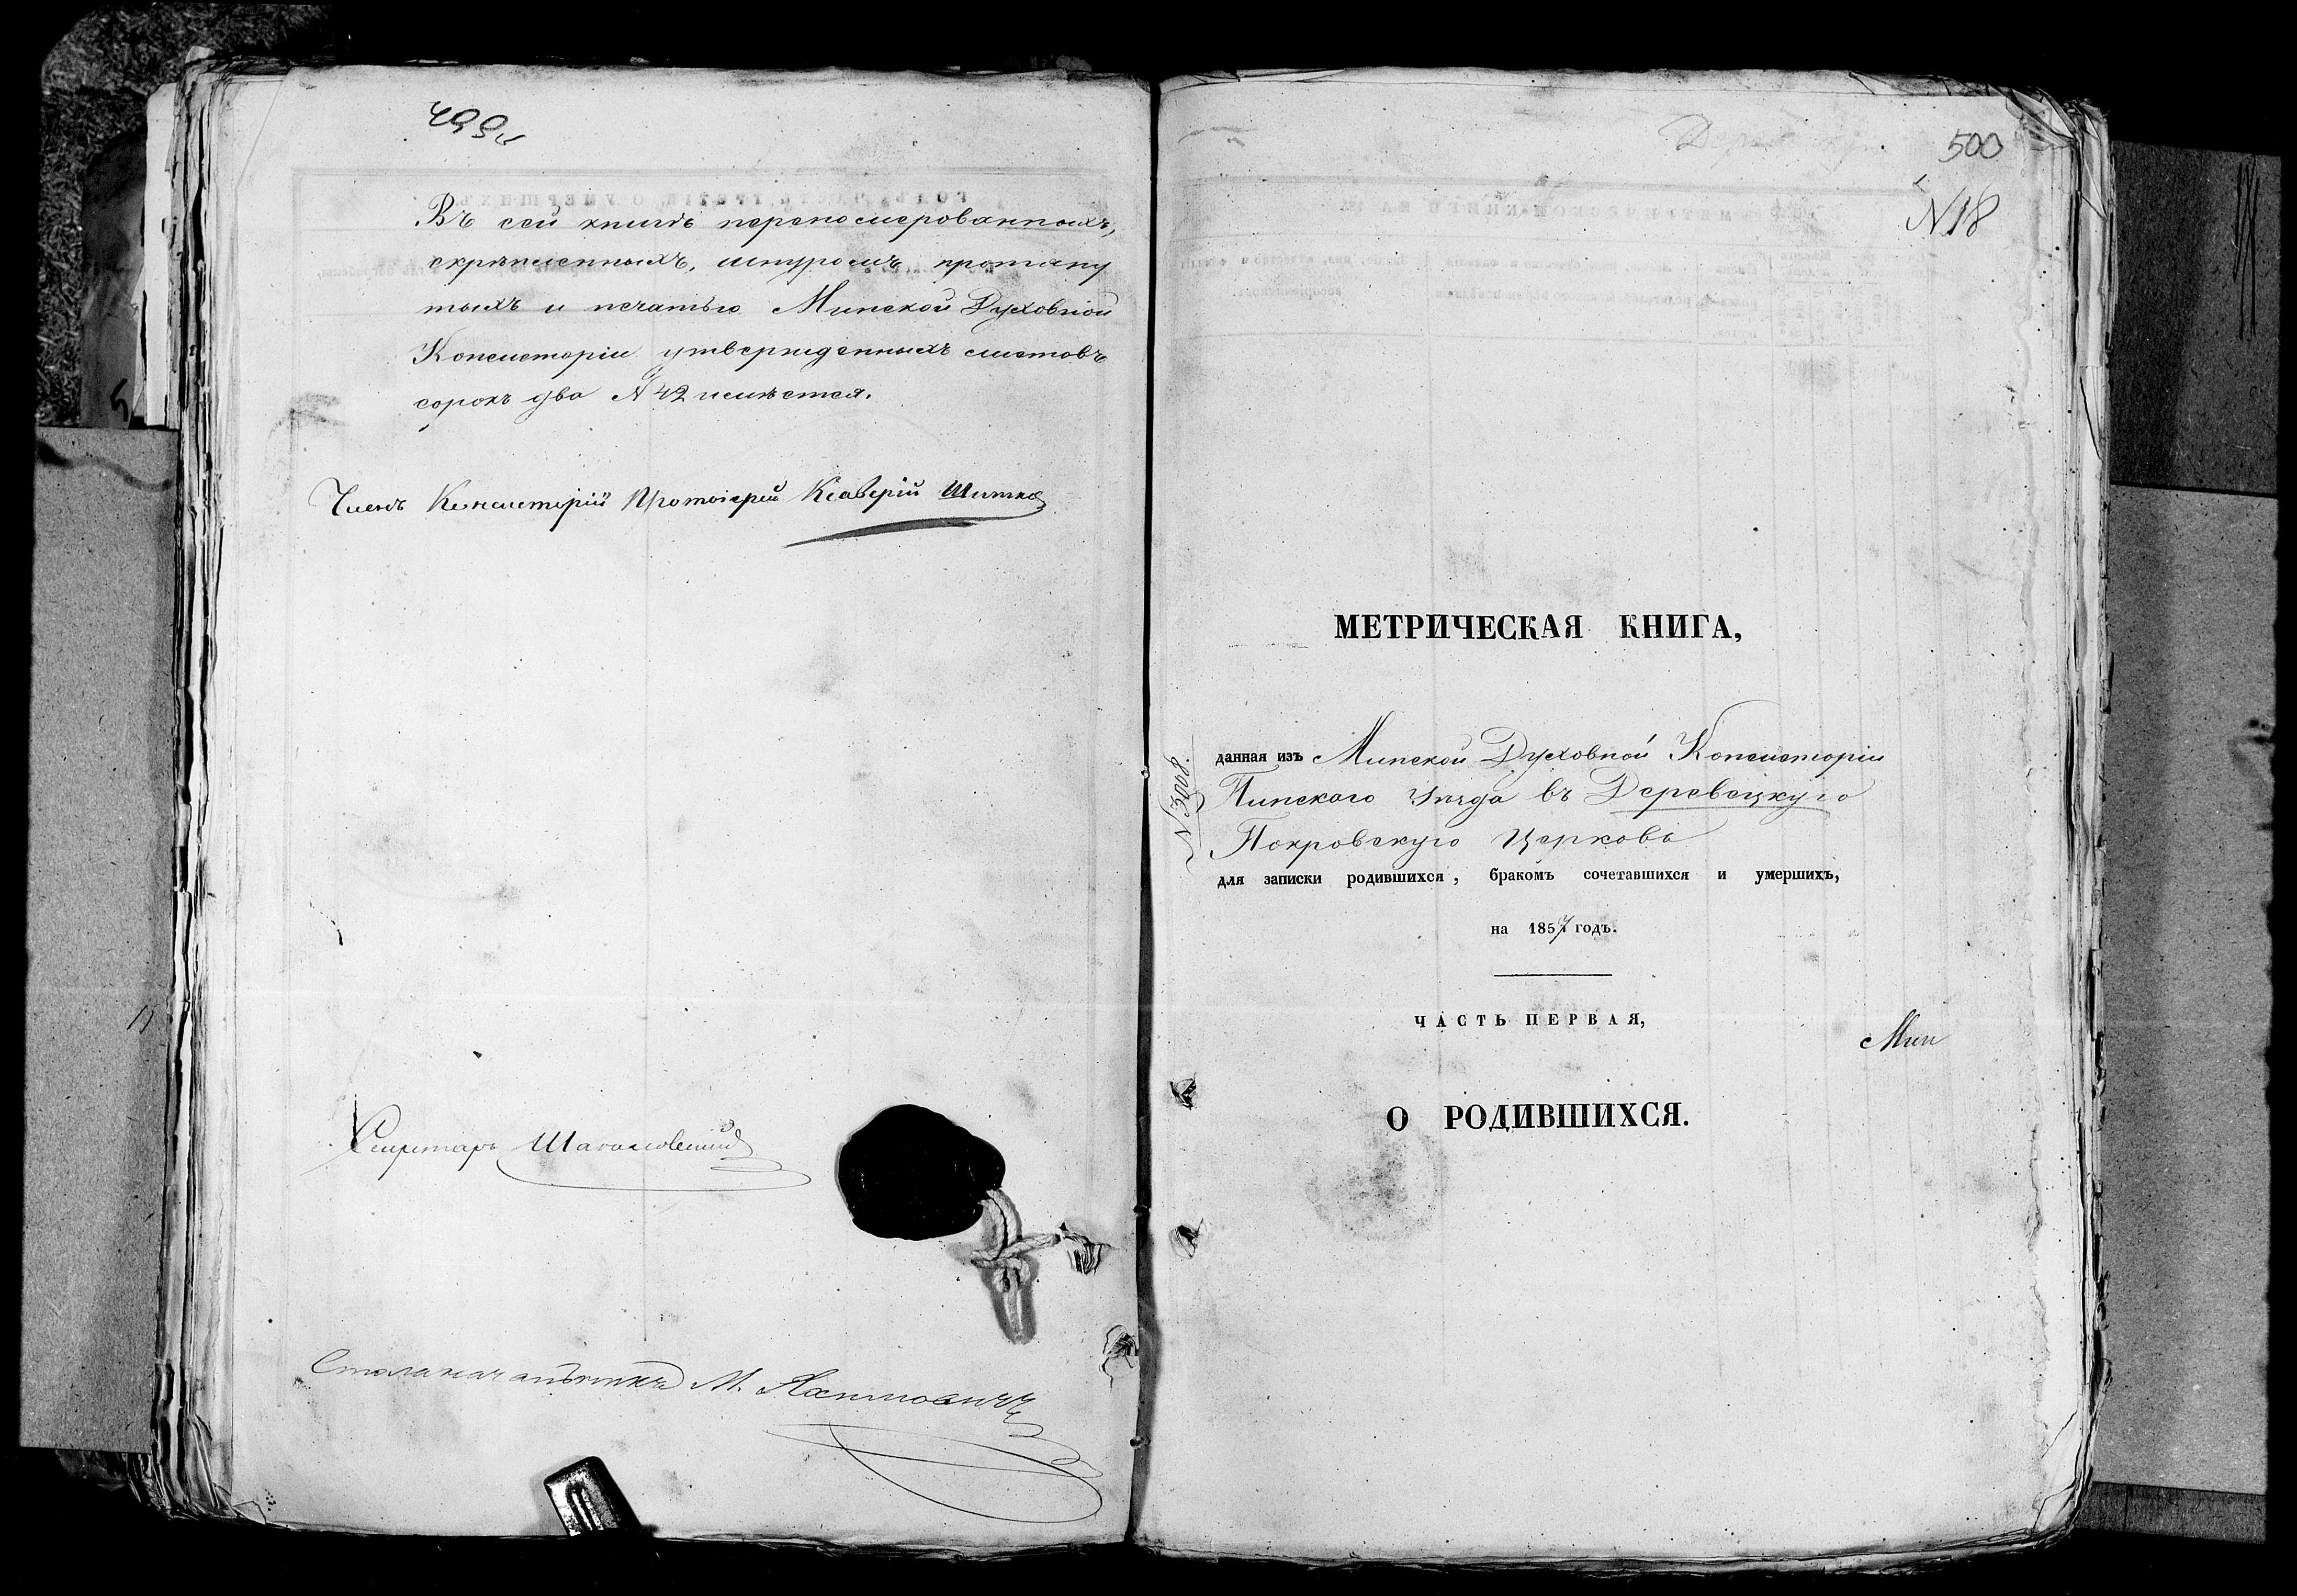 499об
Въ сей книгѣ перепомерованныхъ,
скрѣпленныхъ, шнуромъ протяну
тыхъ и печатью Минской Духовной
Консисторіи утвержденныхъ листовъ
сорокъ два № 42 имѣется.
Членъ Консисторіи Протоіерей Ксаверій
Секретарь
Столоначальникъ М.
500
№ 18
МЕТРИЧЕСКАЯ КНИГА,
№ 3008.
данная изъ Минской Духовной Консисторіи
Пинскаго Уѣзда въ Деревецкую
Покровскую Церковь
для записки родившихся, бракомъ сочетавшихся и умершихъ,
на 1857 годъ.
ЧАСТЬ ПЕРВАЯ,
Мин
О РОДИВШИХСЯ.